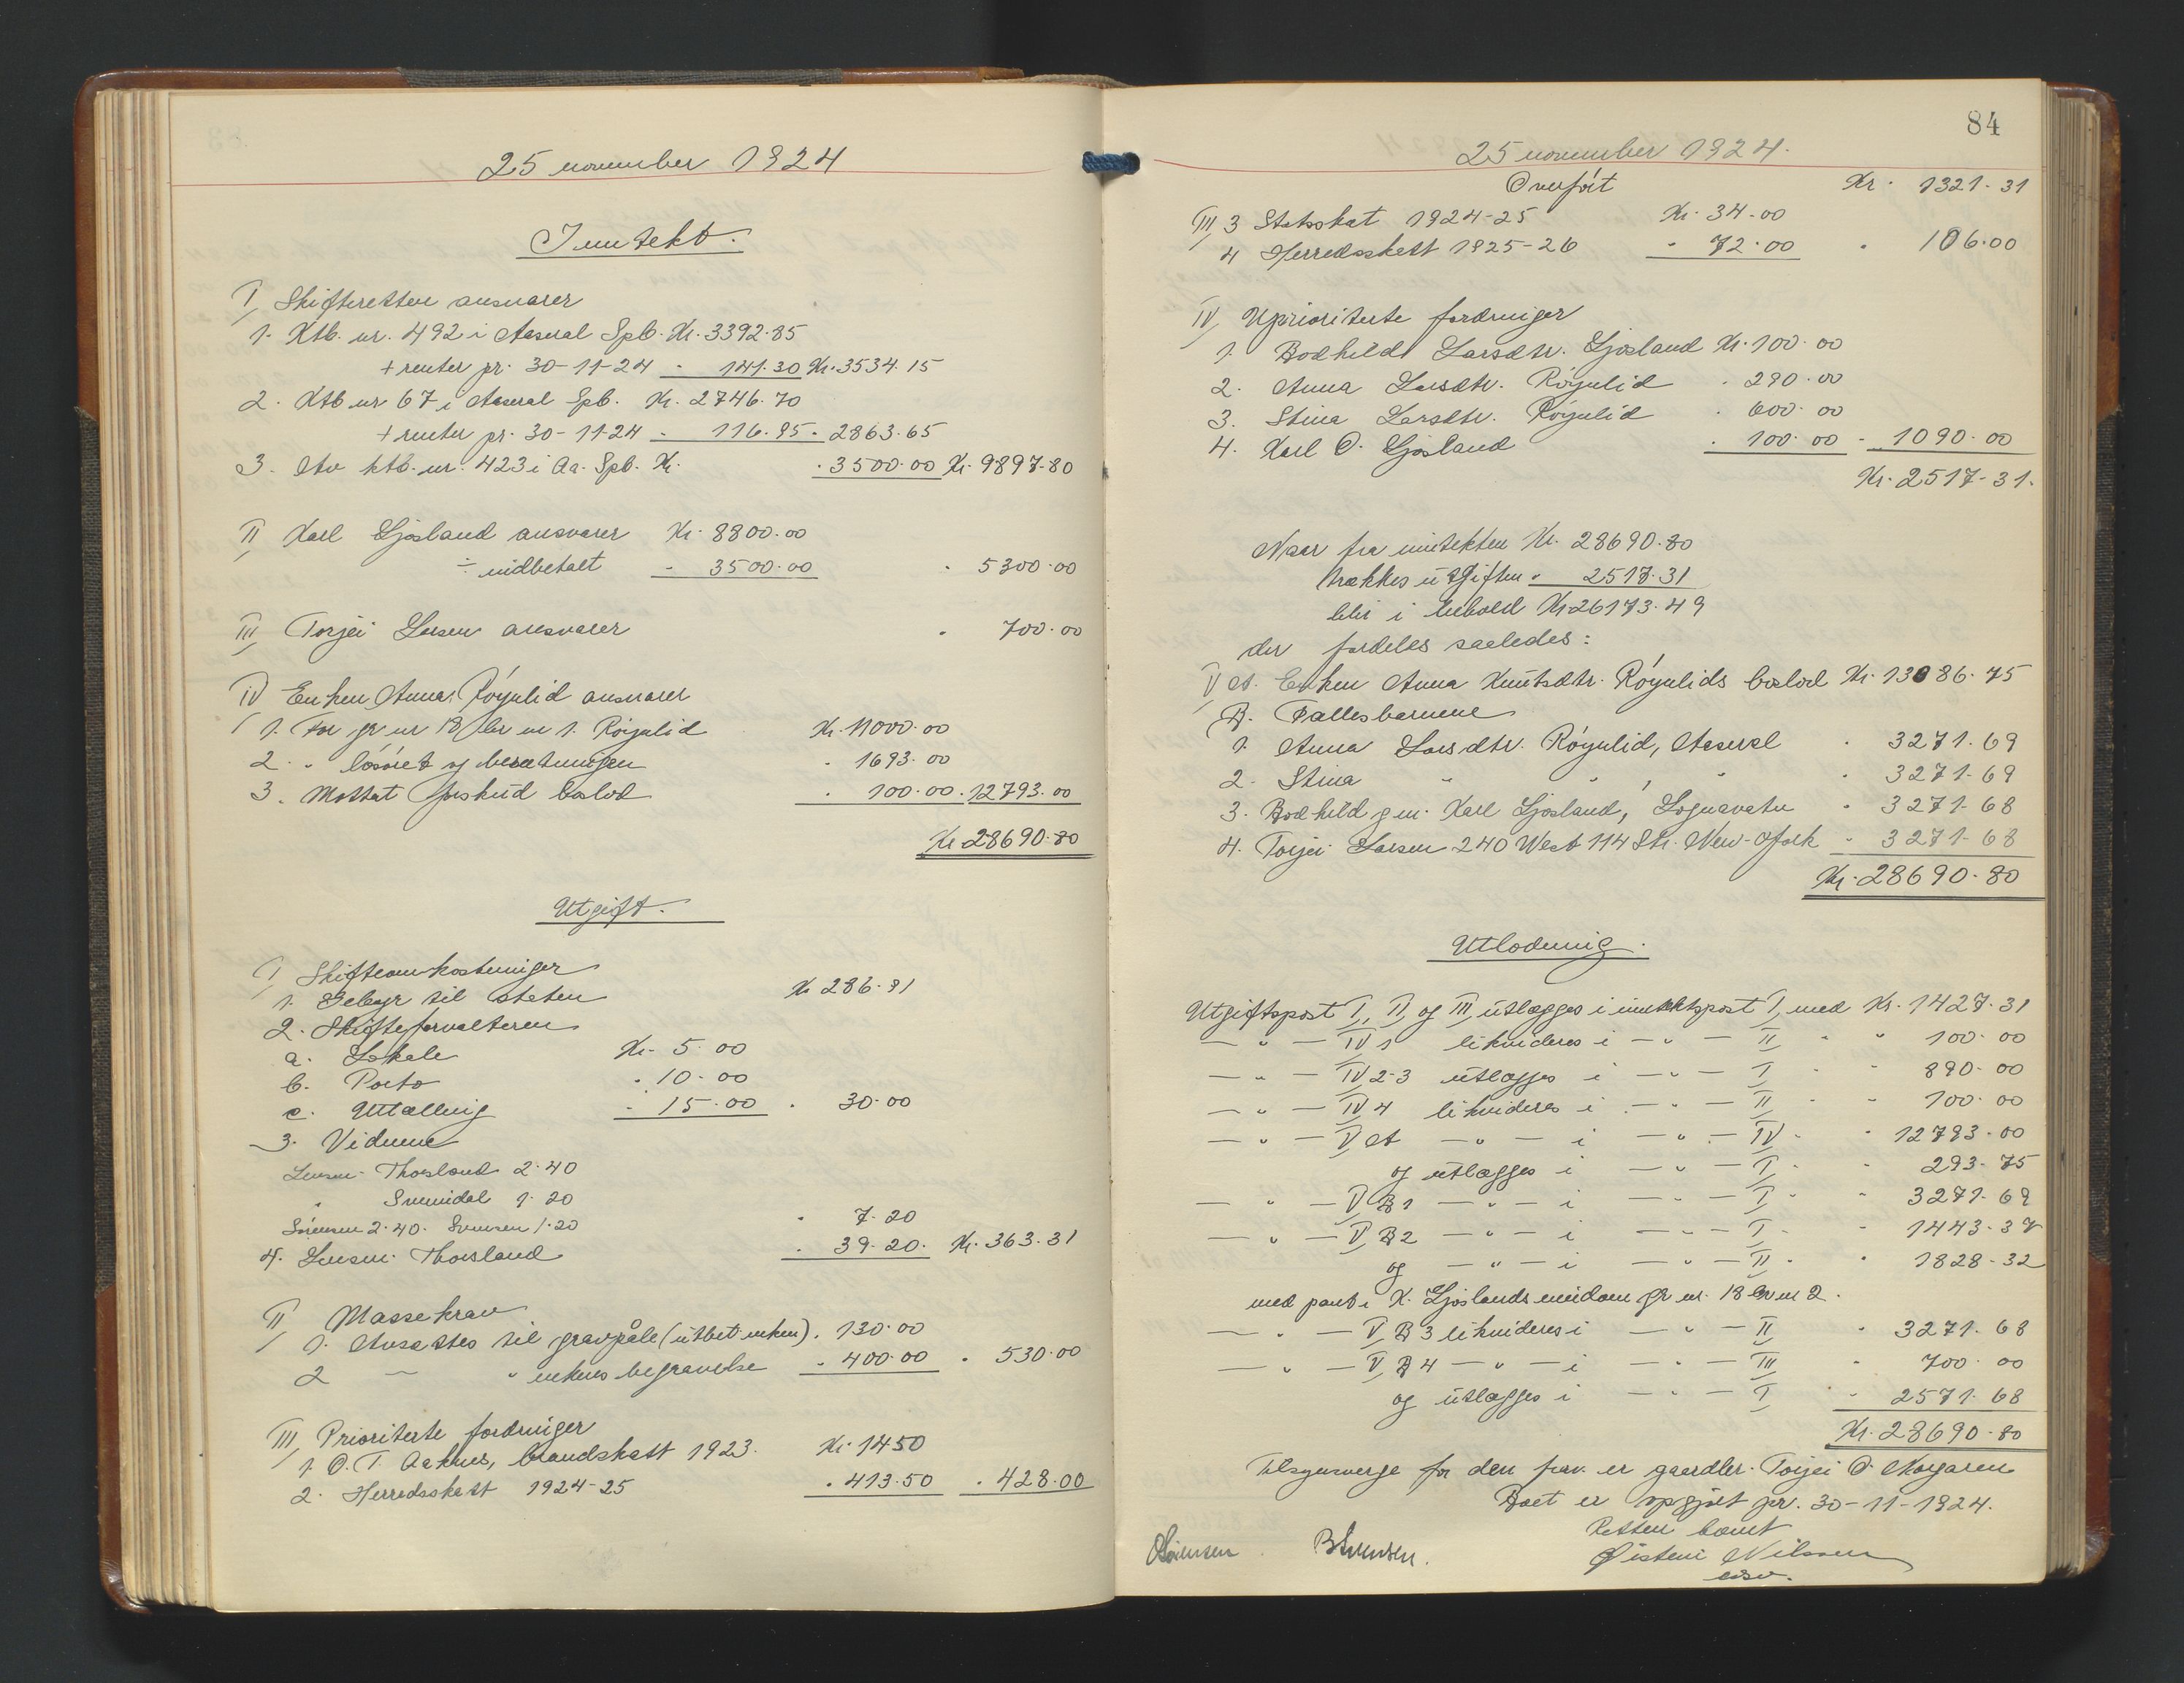 25 november 1924
Inntekt.
I, Skifteretten ansvarer
1. Ktb. nr. 492 i Aaseral Spb. Kr. 3392.85
+ renter pr. 30-11-24 - 141.30 Kr. 3534.15
2. Ktb nr 67 i Aaseral Spb. Kr. 2746.70
+ renter pr. 30-11-24 - 116.95 - 2863.65
3. Av ktb. nr. 423 i Aa. Spb. Kr. - 3500.00 Kr. 9897.80
II, Karl Ljosland ansvarer Kr. 8800.00
÷ indbetalt - 3500.00 - 5300.00
III, Torjei Larsen ansvarer - 700.00
IV, Enken Anna Röynlid ansvarer
1. For gr nr 18 br nr 1. Röynlid Kr. 11000.00
2. " lösöret og besetningen - 1693.00
3. Mottat forskud boslod - 100.00 - 12793.00
Kr 28690.80
Utgift.
I, Skifteomkostninger
1. Gebyr til staten Kr 286.91
2. Skifteforvalteren
a. Lokale Kr. 5.00
b. Porto - 10.00
c. Uttælling - 15.00 - 30.00
3. Vidnene
Lensm. Thorsland 2.40
" Svennidal 1.20
Sörensen 2.40. Svensen 1.20 - 7.20
4. Lensm. Thorsland - 39.20. Kr. 363.31
II, Massekrav
1. Avsættes til gravpåle (utbet. enken). 130.00
2 — " enkens begravelse - 400.00 - 530.00
III, Prioriterte fordringer
1. O. T. Aaknes, brandskatt 1923. Kr. 14.50
2. Herredsskatt 1924-25 - 413.50 - 428.00
84
25 november 1924.
Overfört Kr. 1321.31
III, 3 Statsskat 1924-25 Kr. 34.00
4 Herredsskatt 1925-26 - 72.00 - 106.00
IV, Uprioriterte fordringer
1. Bodhild Larsdtr. Ljosland Kr. 100.00
2. Anna Larsdtr. Röynlid - 290.00
3. Stina Larsdtr. Röynlid - 600.00
4. Karl O. Ljosland - 100.00 - 1090.00
Kr. 2517.31.
Naar fra inntekten Kr. 28690.80
trækkes utgiften - 2517.31
blir i behold Kr. 26173.49
der fordeles saaledes:
V, A. Enken Anna Knutsdtr. Röynlids boslod Kr. 13086.75
B. Fællesbarnene
1. Anna Larsdtr. Röynlid, Aaseral - 3271.69
2. Stina " " , " - 3271.69
3. Bodhild gm. Karl Ljosland, Lognavatn - 3271.68
4. Torjei Larsen 240 West 114 Str. New-York - 3271.68
Kr. 28690.80
Utlodning.
Utgiftspost I, II, og III, utlægges i inntektspost I, med Kr. 1427.31
— " — IV 1 likvideres i — " — II " " 100.00
— " — IV 2-3 utlægges i — " — I " " 890.00
— " — IV 4 likvideres i — " — II " " 100.00
— " — V, A — " — i — " — IV - " 12793.00
og utlægges i — " — I, - " 293.75
— " — V, B1 — " — i — " — I - " 3271.69
— " — V, B2 — " — i — " — I - " 1443.37
og — " — i — " — II - " 1828.32
med pant i K. Ljoslands eiendom gr nr. 18 br nr 2.
— " — V, B3 likvideres i — " — II " 3271.68
— " — V, B4 — " — i — " — III " 700.00
og utlægges i — " — I " 2571.68
Kr. 28690.80
Tilsynsverge for den frav. er gaardbr. Torjei O.
Boet er opgjört pr. 30-11-1924.
Retten hævet
Øistein Nilssen
OSörensen. BSvensen.